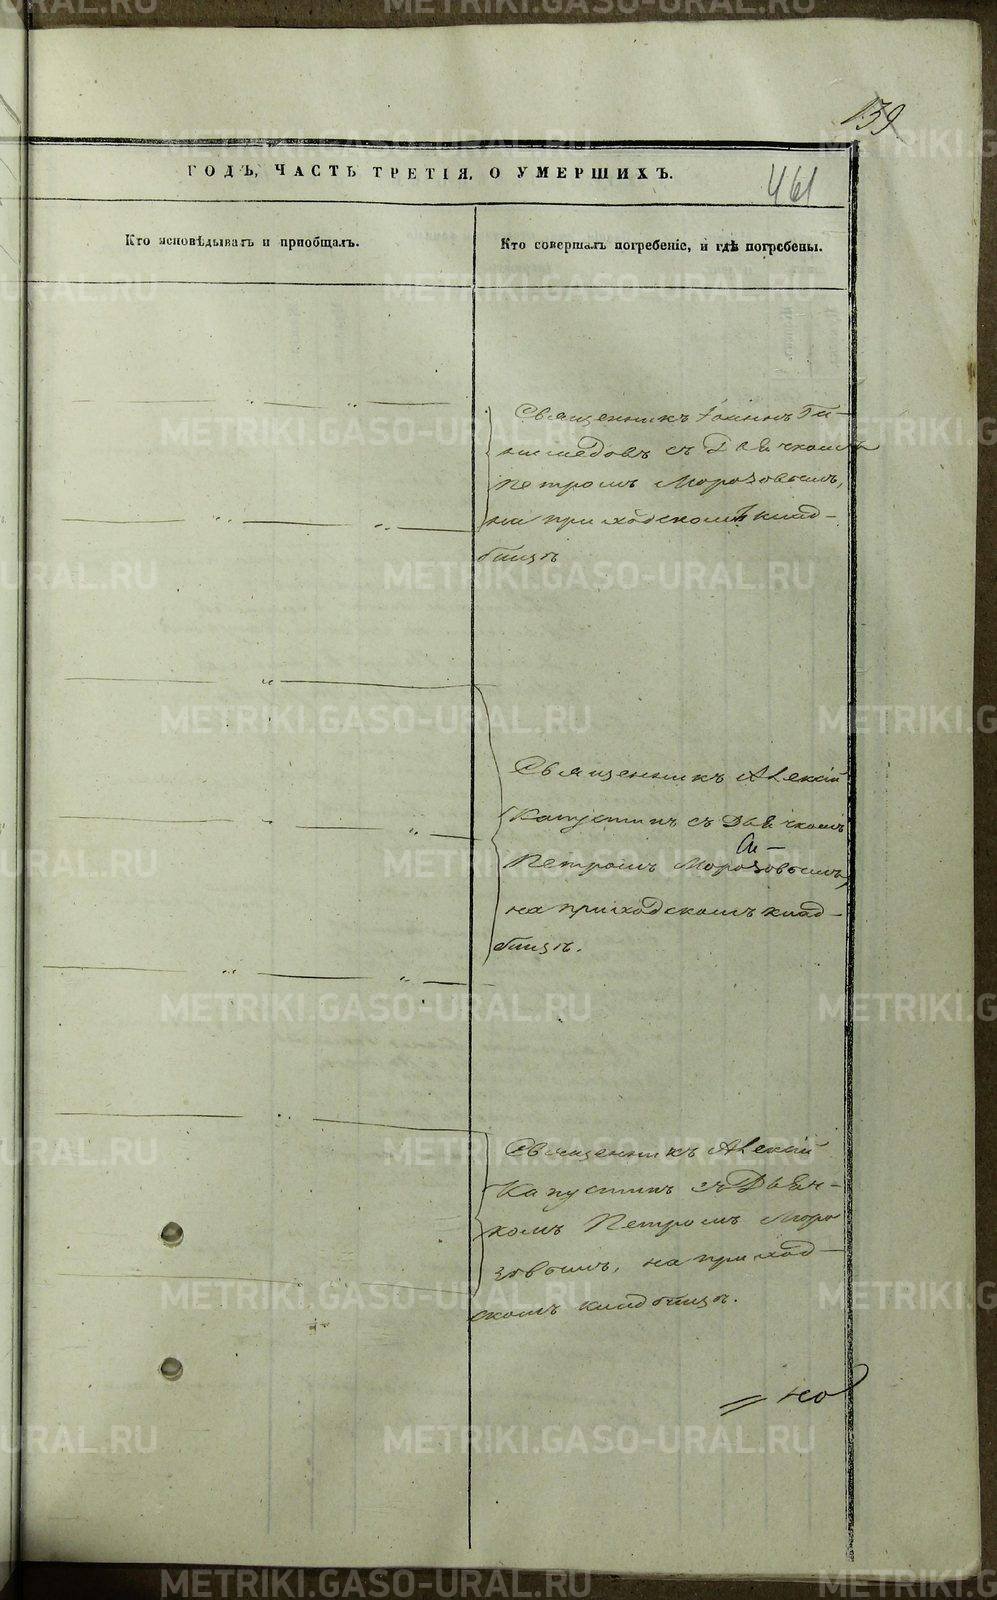 139
ГОДЪ, ЧАСТЬ ТРЕТІЯ, О УМЕРШИХЪ.
461
Кто исповѣдывалъ и пріобщалъ.
Кто совершалъ погребеніе, и гдѣ погребены.
Священникъ Іоаннъ
съ Дьячкомъ
Петромъ Морозовымъ,
на приходскомъ клад-
бищѣ
Священникъ Алексій
Капустинъ съ Дьячкомъ
Петромъ Морозовымъ,
на приходскомъ клад-
бищѣ.
Священникъ Алексій
Капустинъ съ Дьяч-
комъ Петромъ Моро
зовымъ, на приход-
скомъ кладбищѣ.
METRIKI.GASO-URAL.RU